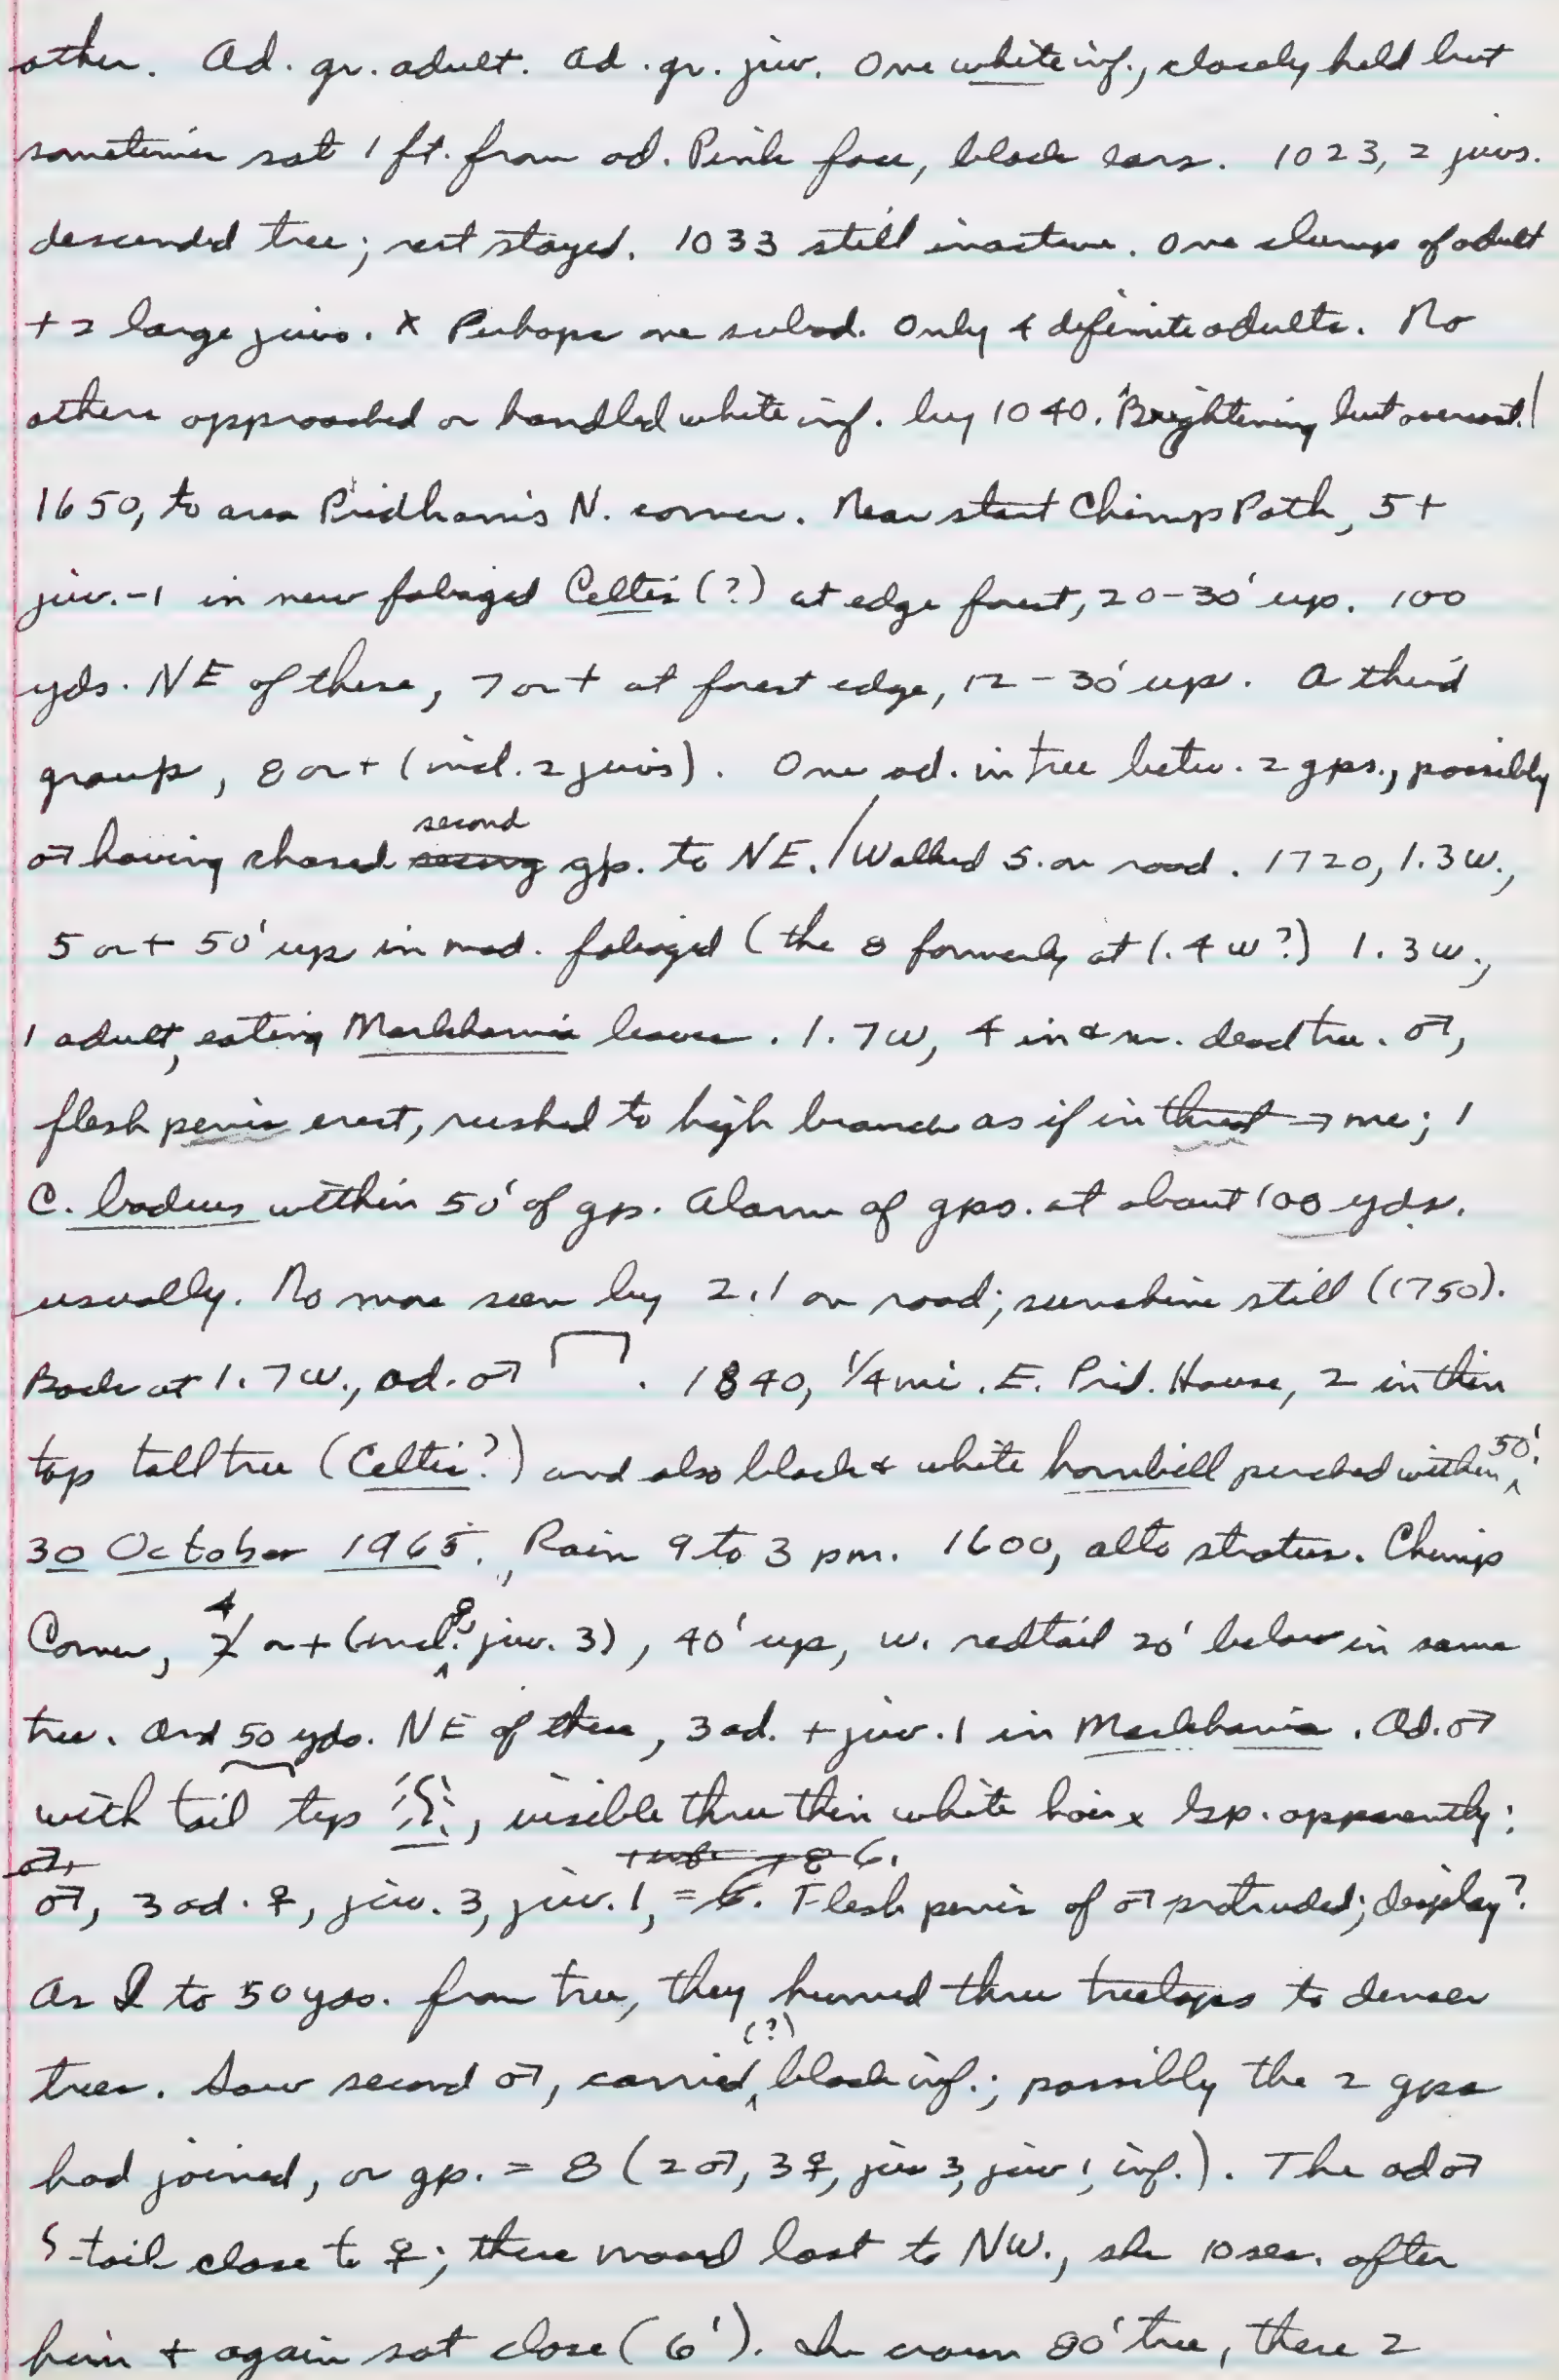 other. Ad. gr. adult. Ad. gr. juv. One white inf., closely held but
sometimes sat 1 ft. from ad. Pink face, black ears. 1023, 2 juvs.
descended tree; rest stayed. 1033 still inactive. One clump of adult
+ 2 large juvs. x Perhaps one subad. Only 4 definite adults. No
others approached or handled white inf. by 1040. Brightening but overcast./
1650, to area Pridham's N. corner. Near start Chimp Path, 5+
juv.-1 in new foliaged Celtis (?) at edge forest, 20-30' up. 100
yds. NE of these, 7 or + at forest edge, 12-30' up. A third
group, 8 or + (incl. 2 juvs). One ad. in tree betw. 2 gps., possibly
♂ having chased second gp. to NE. / Walked S. on road. 1720, 1.3 w.,
5 or + 50' up in mod. foliaged (the 8 formerly at 1.4 w?) 1.3 w.,
1 adult, eating Markhamia leaves. 1.7 w, 4 in & nr. dead tree. ♂,
flesh penis erect, rushed to high branch as if in threat → me; 1
C. badius within 50' of gp. Alarm of gps. at about 100 yds.
usually. No more seen by 2.1 on road; sunshine still (1750).
Back at 1.7 w., ad. ♂ . 1840, 1/4 mi. E. Prid. House, 2 in thin
top tall tree (Celtis?) and also black & white hornbill perched within 50'.
30 October 1965. Rain 9 to 3 pm. 1600, alto stratus. Chimp
Corner, 4 or + (incl. ♀, juv. 3), 40' up, w. redtail 20' below in same
tree. And 50 yds. NE of these, 3 ad. + juv. 1 in Markhamia. Ad. ♂
with tail tip , visible thru thin white hair x Gp. apparently:
♂, 3 ad. ♀, juv. 3, juv. 1, = 6. Flesh penis of ♂ protruded; display?
As I to 50 yds. from tree, they hurried thru treetops to denser
trees. Saw second ♂, carried (?) black inf.; possibly the 2 gps
had joined, or gp. = 8 (2♂, 3♀, juv 3, juv 1, inf.). The ad ♂
S-tail close to ♀; these moved last to NW., she 10 sec. after
him + again sat close (6'). In crown 80' tree, these 2